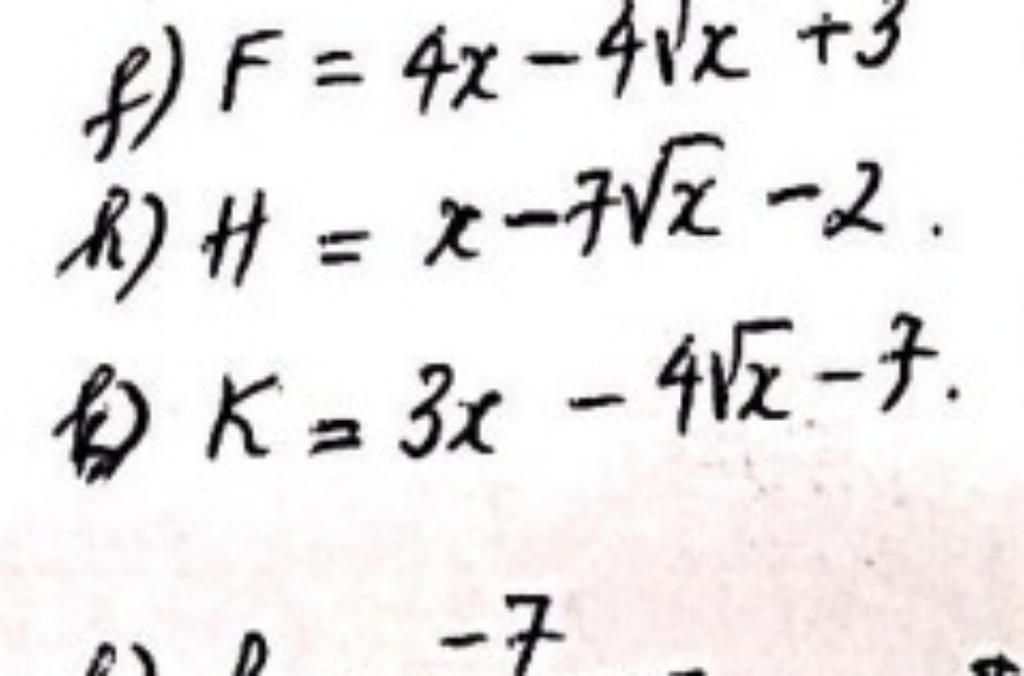 f) F = 4x - 4√x + 3
h) H = x - 7√x - 2.
k) K = 3x - 4√x - 7.
-7